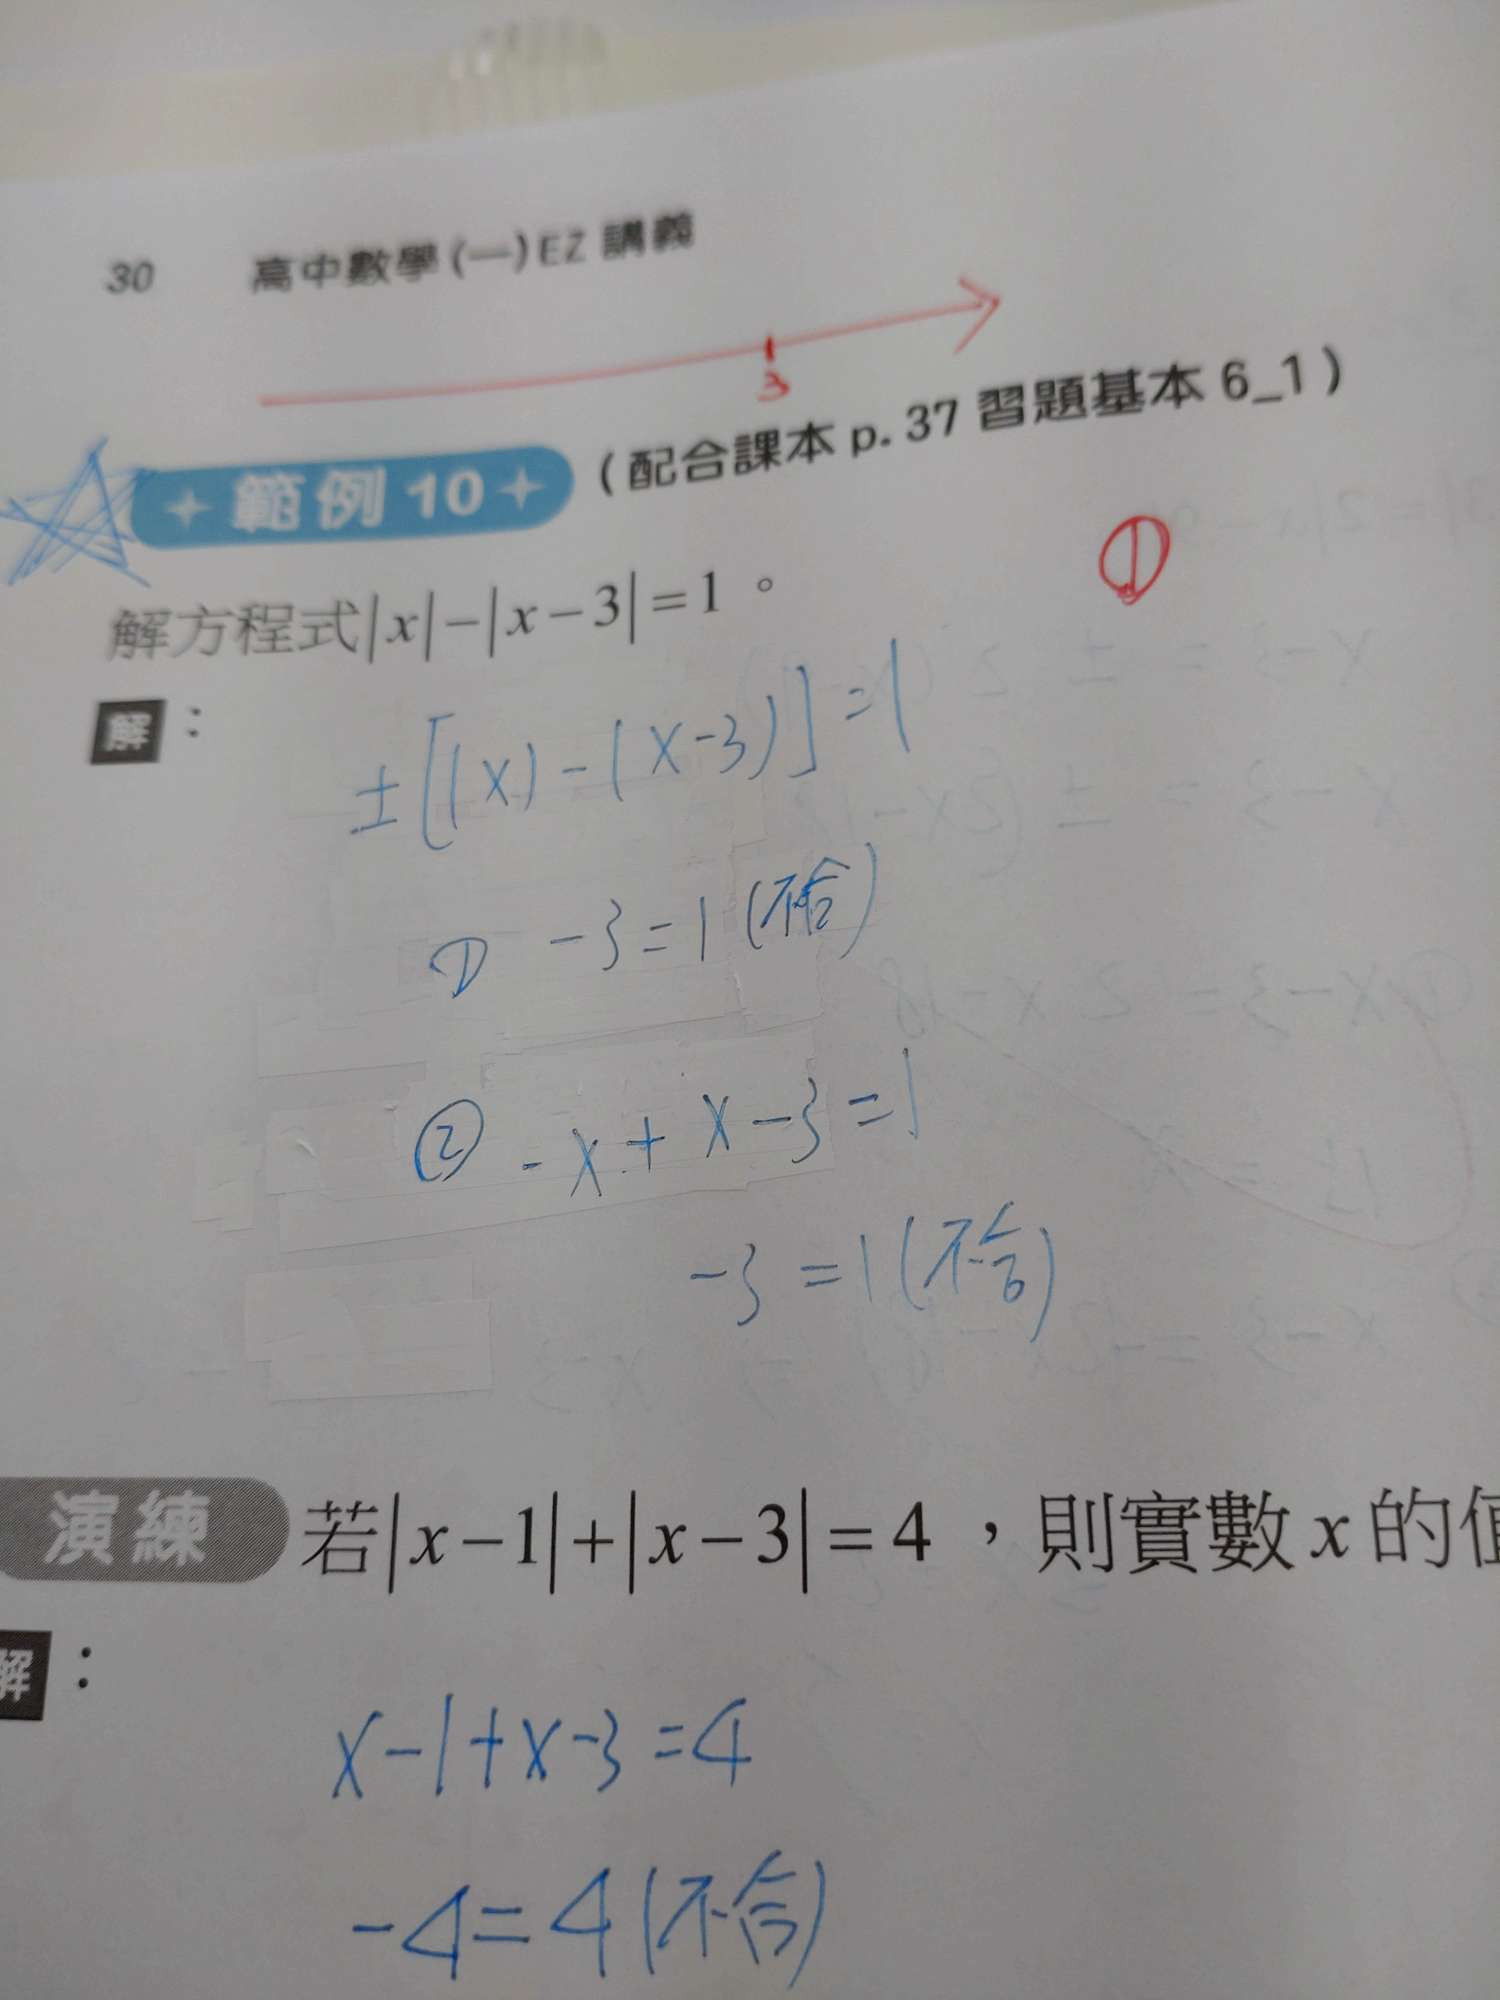 30 高中數學(一)EZ 講義
3
範例 10 (配合課本 p. 37 習題基本 6_1)
①
解方程式|x|−|x−3|=1。
解：
±[(x)-(x-3)]=1
① -3=1(不合)
② -x+x-3=1
-3=1(不合)
演練 若|x−1|+|x−3|=4，則實數 x 的值
解：
x-1+x-3=4
-4=4(不合)